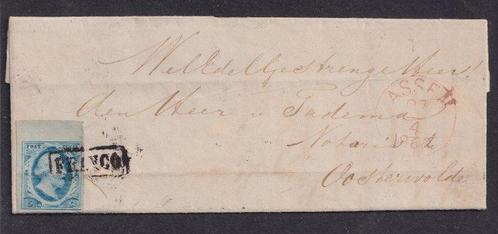 WelEdelGestrenge Heer!
ASSEN
den Heer v. Tadema
4
Notaris te
Oosterwolde
POST
FRANCO